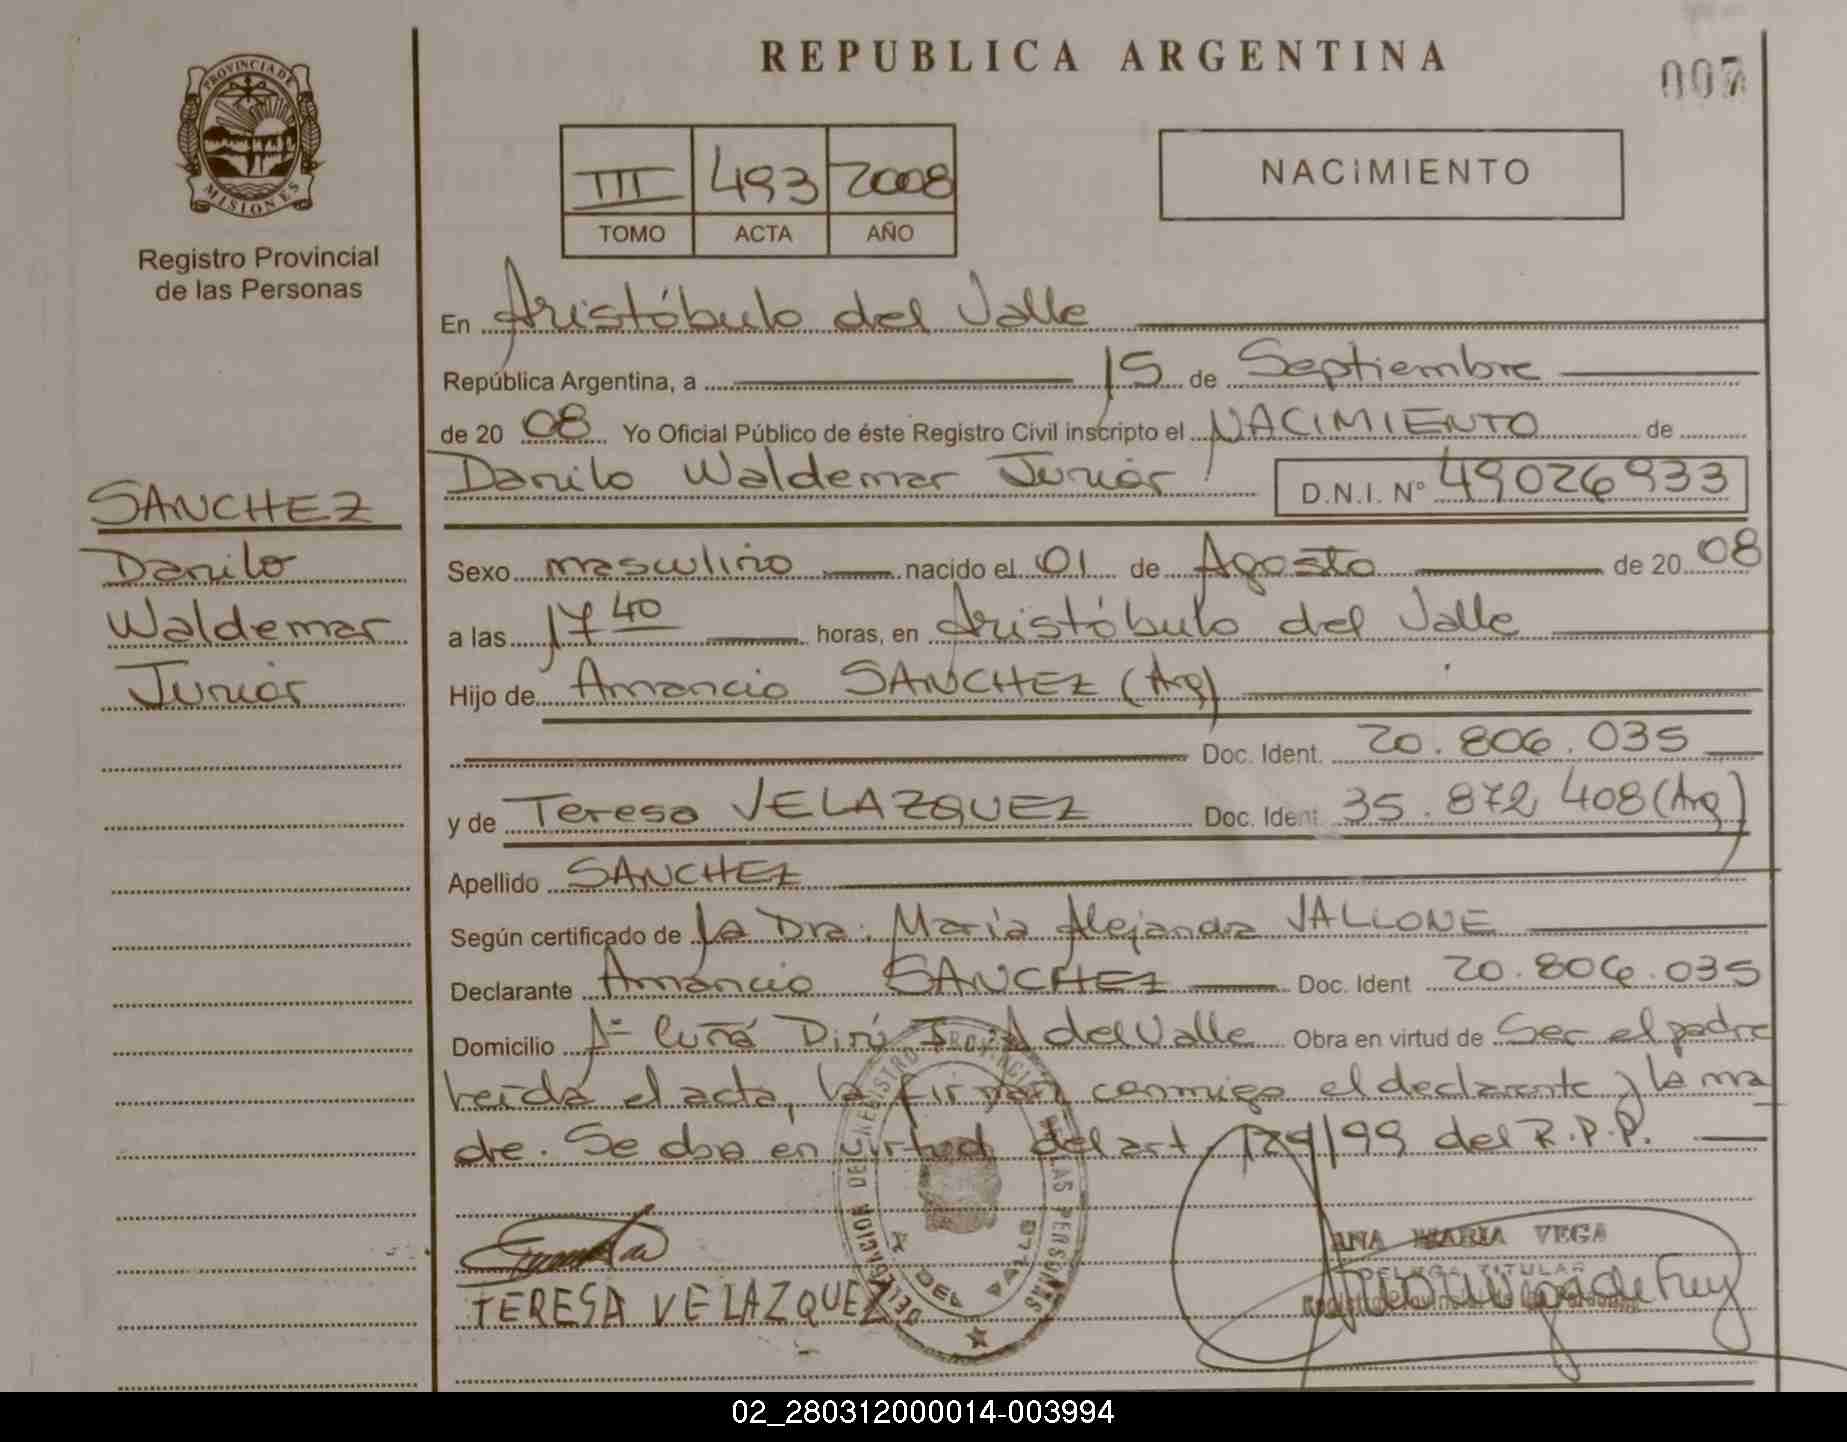 REPUBLICA ARGENTINA
007
PROVINCIA DE
MISIONES
Registro Provincial
de las Personas
III 493 2008
TOMO ACTA AÑO
NACIMIENTO
En Aristóbulo del Valle
República Argentina, a 15 de Septiembre
de 20 08 Yo Oficial Público de éste Registro Civil inscripto el NACIMIENTO de
Danilo Waldemar Junior D.N.I. Nº 49026933
SANCHEZ
Danilo
Waldemar
Junior
Sexo masculino nacido el 01 de Agosto de 20 08
a las 17 40 horas, en Aristóbulo del Valle
Hijo de Amancio SANCHEZ (Arg)
Doc. Ident. 20.806.035
y de Teresa VELAZQUEZ Doc. Ident. 35.872 408 (Arg)
Apellido SANCHEZ
Según certificado de la Dra. María Alejandra VALLONE
Declarante Amancio SANCHEZ Doc. Ident 20.806.035
Domicilio Aº Cuñá Pirú del Valle Obra en virtud de Ser el padre
Leída el acta, la firman conmigo el declarante y la ma
dre. Se obra en virtud del art 129/99 del R.P.P.
DELEGACION DEL REGISTRO PROVINCIAL DE LAS PERSONAS
A. DEL VALLE
TERESA VELAZQUEZ
ANA MARIA VEGA
DELEGA TITULAR
02_280312000014-003994